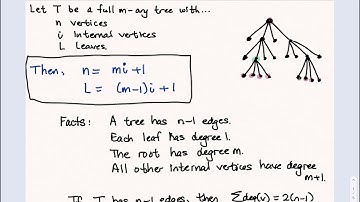 Let T be a full m-ary tree with...
n vertices
i internal vertices
L Leaves.
Then, n = mi + 1
L = (m-1)i + 1
Facts: A tree has n-1 edges.
Each leaf has degree 1.
The root has degree m.
All other internal vertices have degree
m+1.
If T has n-1 edges, then Σdeg(v) = 2(n-1)